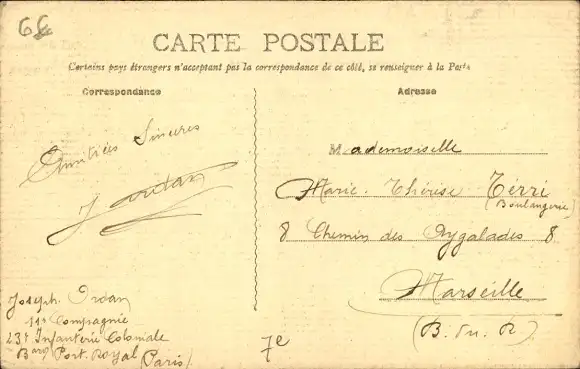 66
CARTE POSTALE
Certains pays étrangers n'acceptant pas la correspondance de ce côté, se renseigner à la Poste
Correspondance
Adresse
Amitiées Sincères
J Ordan
Mademoiselle
Marie-Thérèse Térri
(Boulangerie)
8 Chemin des Aygalades 8
Marseille
(B. du. R)
Joseph Ordan
11e Compagnie
23e Infanterie Coloniale
Port. Royal (Paris)
7e